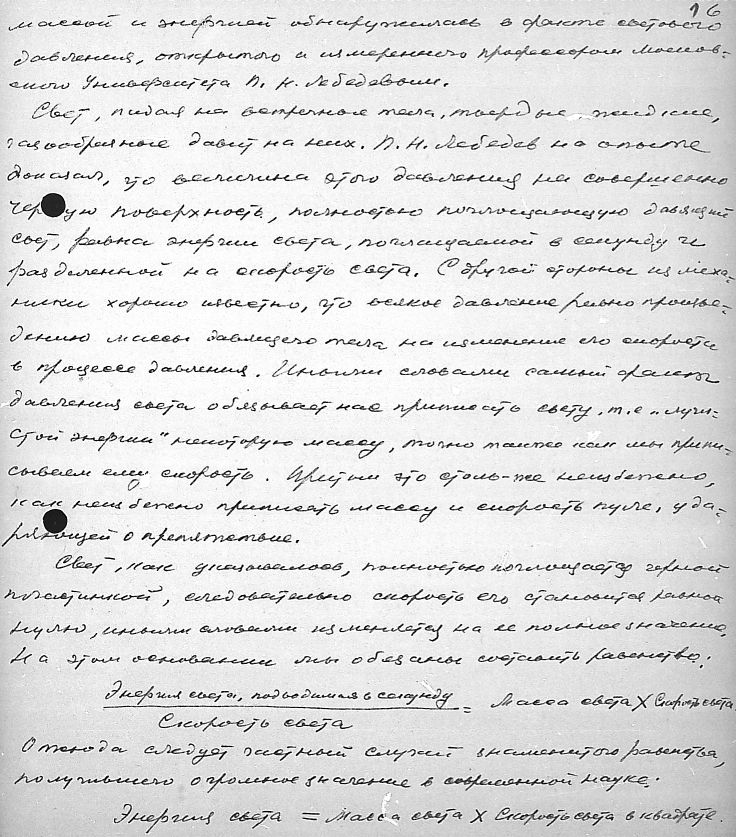 16
массой и энергией обнаружилась в факте светового
давления, открытого и измеренного профессором Москов-
ского Университета П. Н. Лебедевым.
Свет, падая на встречные тела, твердые, жидкие,
газообразные давит на них. П. Н. Лебедев на опыте
доказал, что величина этого давления на совершенно
черную поверхность, полностью поглощающую давящий
свет, равна энергии света, поглощаемой в секунду и
разделенной на скорость света. С другой стороны из меха-
ники хорошо известно, что всякое давление равно произве-
дению массы давящего тела на изменение его скорости
в процессе давления. Иными словами самый факт
давления света обязывает нас приписать свету, т.е „лучи-
стой энергии" некоторую массу, точно также как мы припи-
сываем ему скорость. Притом это столь-же неизбежно,
как неизбежно приписать массу и скорость пуле, уда-
ряющей о препятствие.
Свет, как указывалось, полностью поглощается черной
пластинкой, следовательно скорость его становится равной
нулю, иными словами изменяется на ее полное значение.
На этом основании мы обязаны составить равенство:
Энергия света, подводимая в секунду
= Масса света X Скорость света.
Скорость света
Отсюда следует частный случай знаменитого равенства,
получившего огромное значение в современной науке:
Энергия света = Масса света X Скорость света в квадрате.